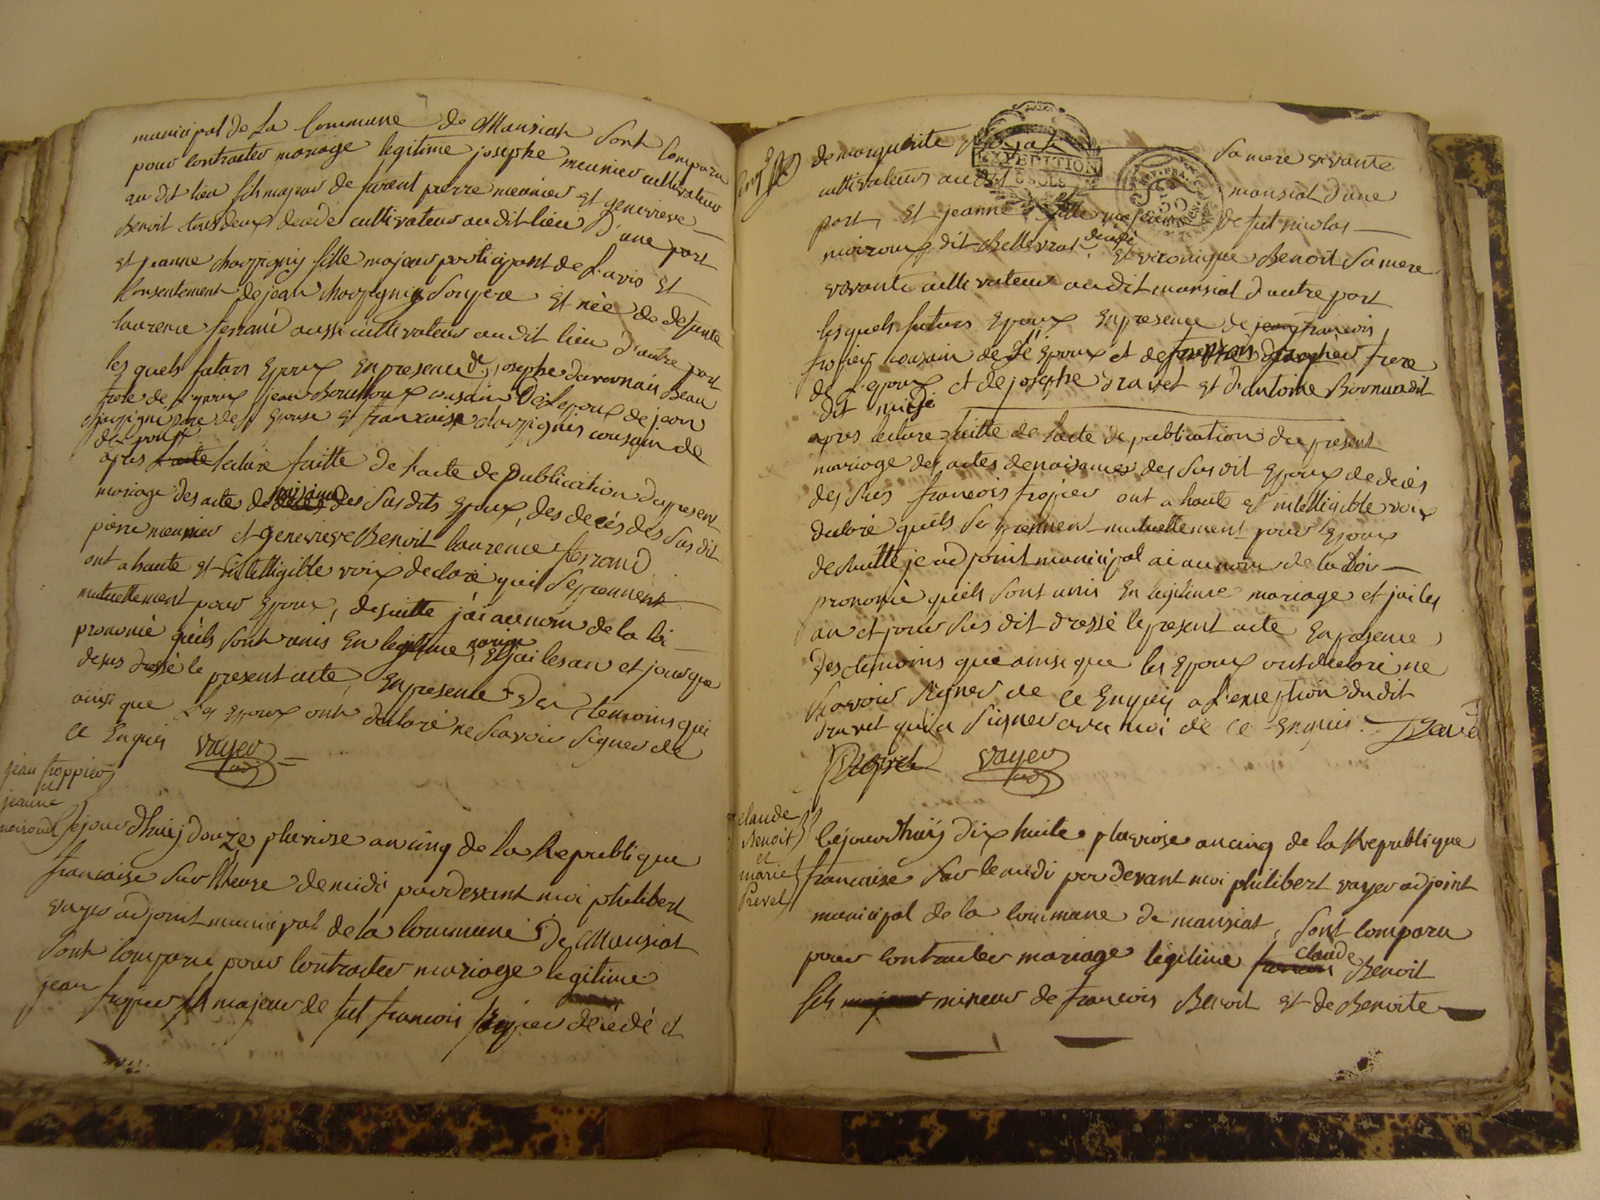 municipal de La Commune de Mansiat sont comparu
pour contracter mariage legitime josephe meunier cultivateur
au dit lieu fils majeur de furent pierre meunier et genevieve
Benoit tous deux decede cultivateur au dit lieu d'une part
et jeanne fille majeur participant de L'avis et
Consentement de jean son pere et née de defunte
laurence ferrand aussi cultivateur au dit lieu d'autre part
les quels futurs Epoux En presence de josephe Beau
frere de l'epoux jean cousin De l'epoux de jean
pere de l'Epouse et francaise cousin de
de l'epouse
apres lecture faitte de l'acte de publication du present
mariage des actes de naisance des susdits Epoux, des decés des susdit
pierre meunier et genevieve Benoit laurence ferrand
ont a haute et Intelligible voix declaré quil se prennent
mutuellement pour Epoux, de suitte j'ai au nom de la loi
prononcé quils sont unis En legitime mariage Et jai les an et jour que
desus dressé le present acte En presence Des temoins qui
ainsi que Les Epoux ont declaré ne scavoir signer de
Ce Enquis vayer
jean froppier
et
jeanne
noiroud
Cejourdhuij douze pluviose an cinq de la Republique
francaise sur l'heure de midi pardevant moi philibert
vayer adjoint municipal de la Commune De Mansiat
sont comparu pour contracter mariage legitime
jean fropier fils majeur de fut francois fropier décédé et
de marguerite sa mere vivante
cultivateur au dit mansiat d'une
part, Et jeanne fille majeur de fut nicolas
noiroux dit Bellevrat decedé et veronique Benoit sa mere
vivante cultivateur au dit mansiat d'autre part
les quels futurs Epoux En presence de francois
fropier cousin de l'Epoux et de frere
de l'epoux et de josephe ravet et d'antoine Bornuat dit
dit
EXPEDITION
apres lecture faitte de l'acte de publication du present
mariage des actes de naisances des susdit Epoux de decés
des sus francois fropier ont a haute et intelligible voix
declaré quils se prennent mutuellement pour Epoux
de suitte je adjoint municipal ai au nom de la Loi
prononcé quils sont unis En legitime mariage et jai les
an et jour susdit dressé le present acte En presence
Des temoins que ainsi que les Epoux ont declaré ne
scavoir signer de ce Enquis a l'exception du dit
ravet qui a signer avec moi de ce Enquis
vayer
claude
Benoit
et
marie
Prevel
Cejourdhuij dix huite pluviose an cinq de la Republique
francaise sur le midi par devant moi philibert vayer adjoint
municipal de la Commune de mansiat, sont comparu
pour contracter mariage legitime claude Benoit
fils mineur de francois Benoit et de Benoite